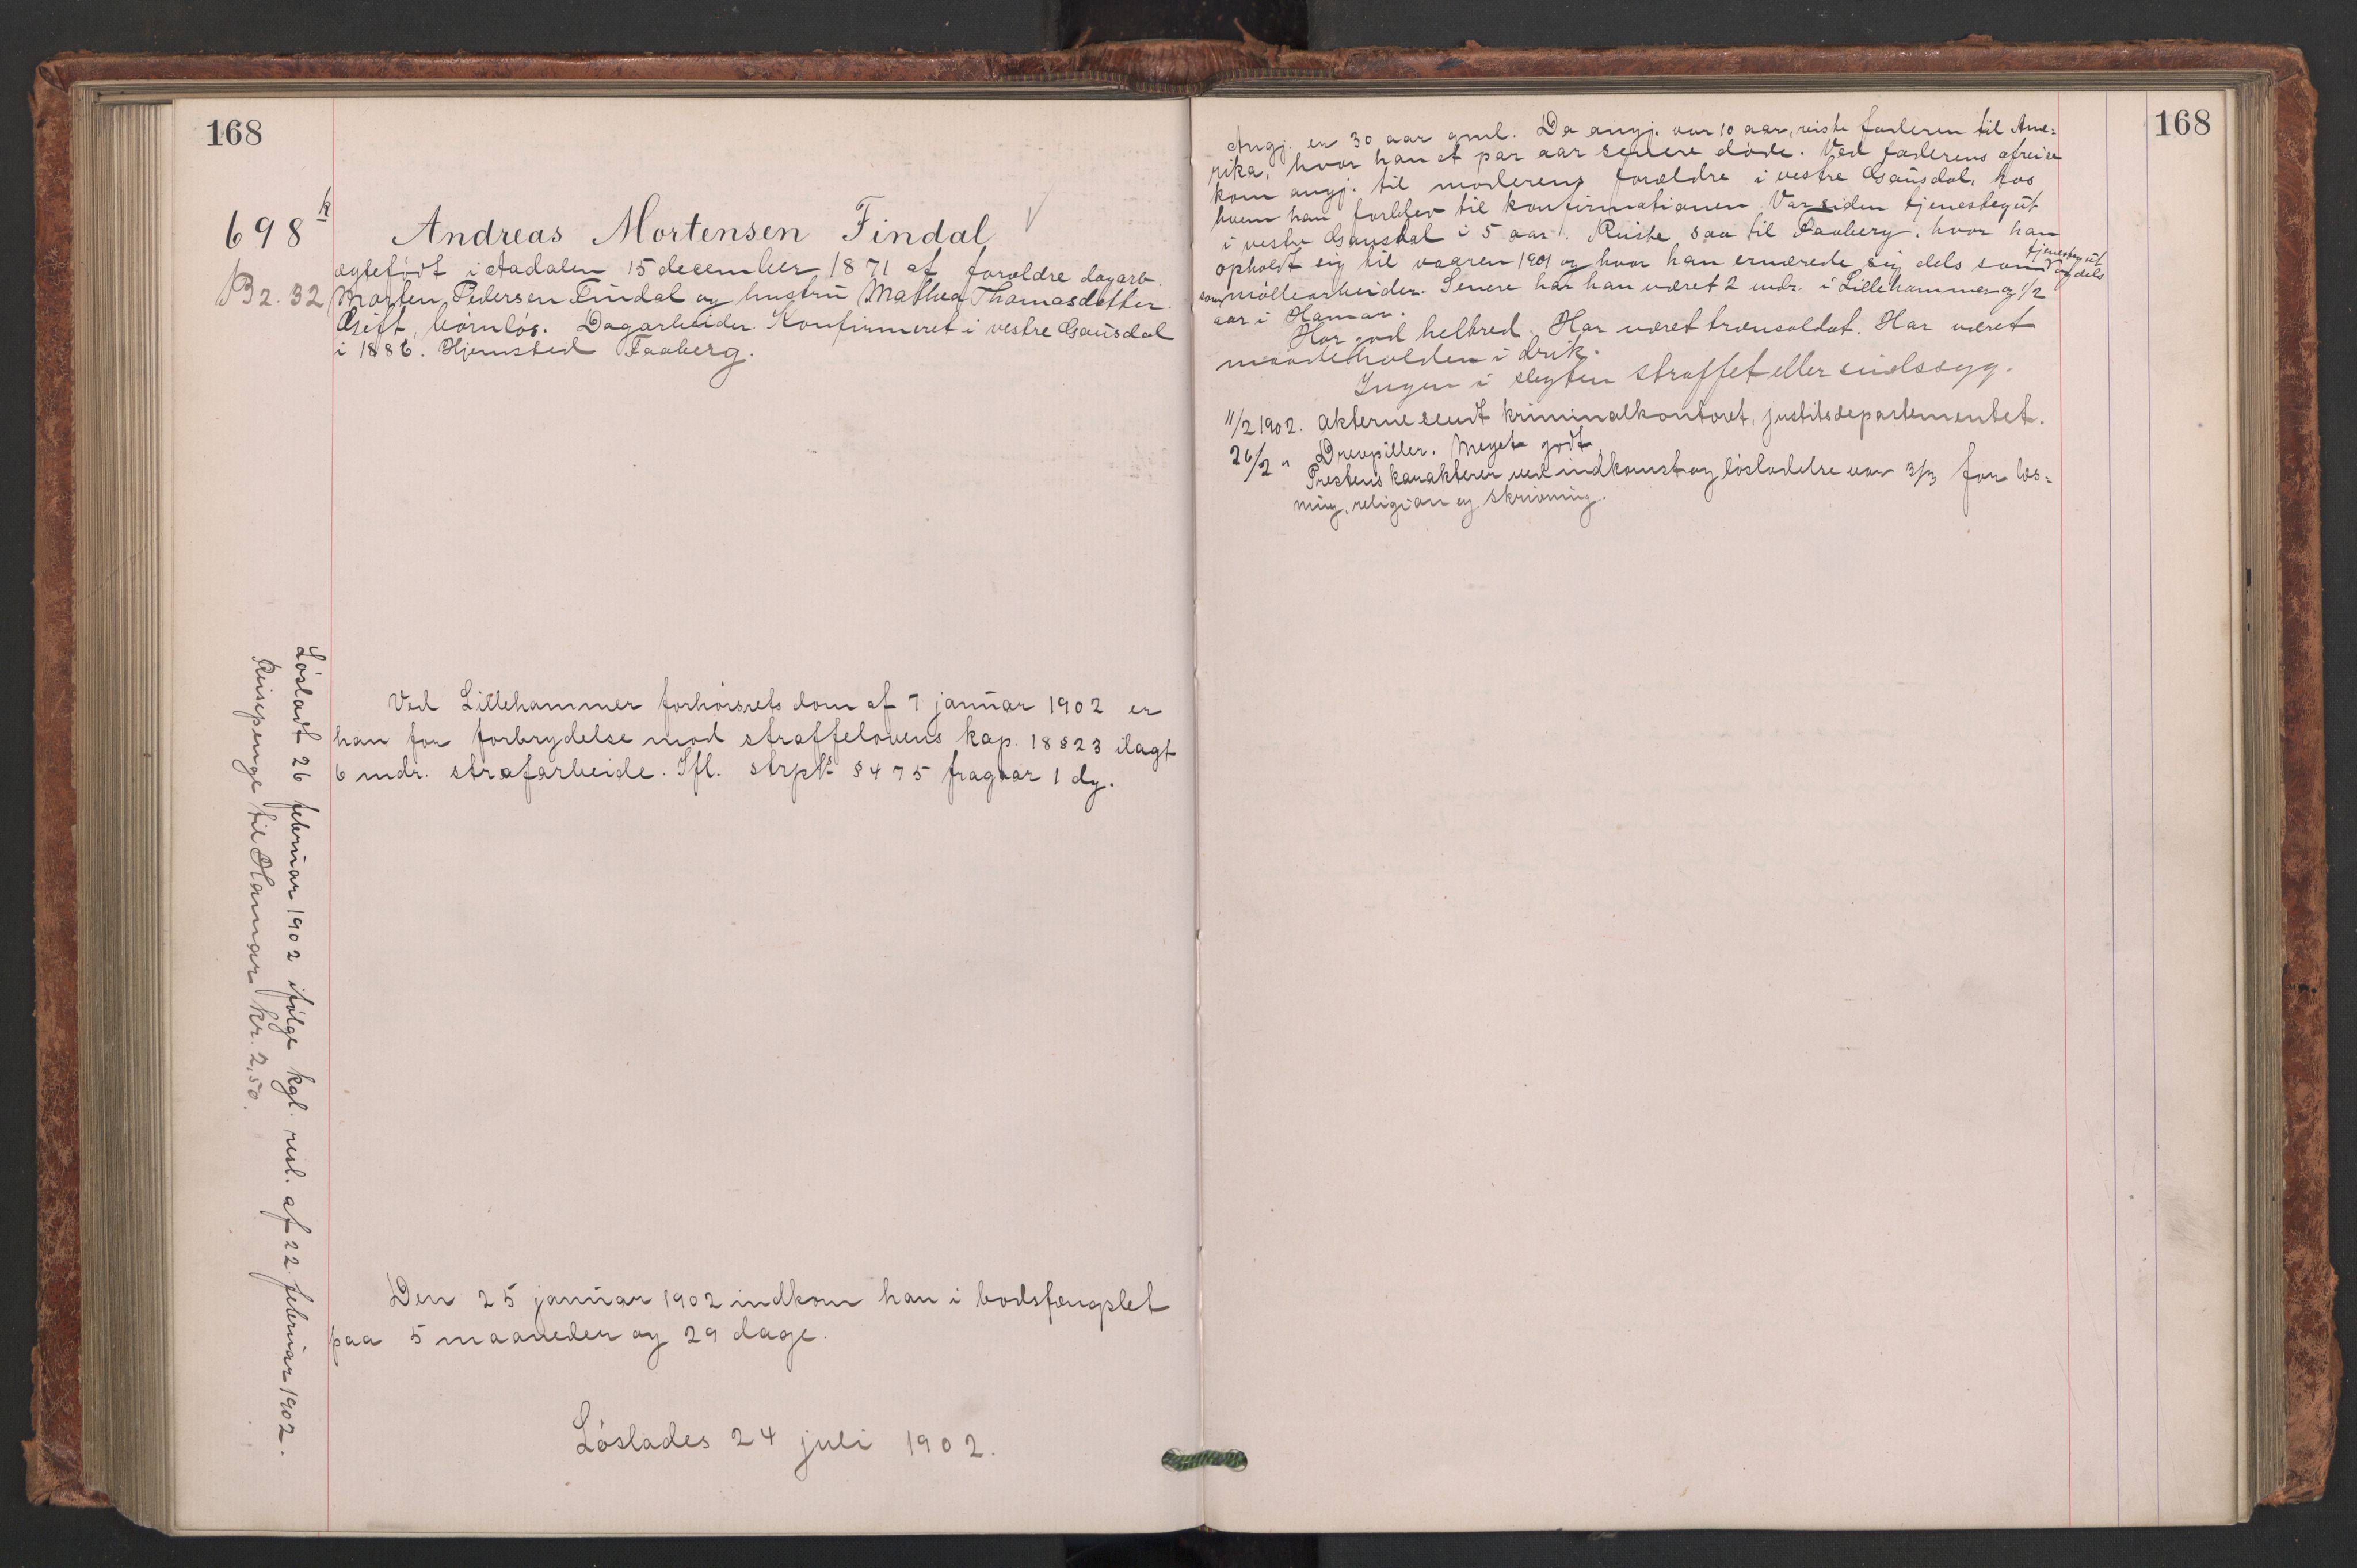 168
698 k
B2. 32
Andreas Mortensen Findal
ægtefødt i Aadalen 15 december 1871 af forældre dagarb.
Morten Pedersen Findal og hustru Mathea Thomasdatter.
Gift, børnløs. Dagarbeider. Konfirmeret i vestre Gausdal
i 1886. Hjemsted Faaberg.
Ved Lillehammer forhørsrets dom af 7 januar 1902 er
han for forbrydelse mod straffelovens kap. 18 § 23 ilagt
6 mdr. strafarbeide. Ifl. strpl. § 475 fragaar 1 dg.
Den 25 januar 1902 indkom han i bodsfængslet
paa 5 maaneder og 29 dage.
Løslades 24 juli 1902.
Løsladt 26 februar 1902 ifølge kgl. resl. af 22 februar 1902.
Reisepenge til Hamar kr. 2,50.
168
Angj. er 30 aar gml. Da angj. var 10 aar, reiste faderen til Ame=
rika, hvor han et par aar senere døde. Ved faderens afreise
kom angj. til moderens forældre i vestre Gausdal, hos
hvem han forblev til konfirmationen. Var siden tjenestegut
i vestre Gausdal i 5 aar. Reiste saa til Faaberg, hvor han
opholdt sig til vaaren 1901 og hvor han ernærede sig dels som tjenestegut og dels
som møllearbeider. Senere har han været 2 mdr. i Lillehammer og 1/2
aar i Hamar.
Har god helbred. Har været trænsoldat. Har været
maadeholden i drik.
Ingen i slegten straffet eller sindssyg.
11/2 1902. Akterne sendt kriminalkontoret, justitsdepartementet.
26/2 " Drevpiller. Meget godt.
Prestens karakterer ved indkomst og løsladelse var 3/3 for læs=
ning, religion og skrivning.